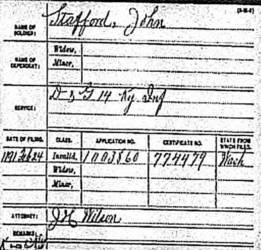 NAME OF SOLDIER: Stafford, John
NAME OF DEPENDENT: Widow,
Minor,
SERVICE: D & G 14 Ky. Inf
DATE OF FILING. CLASS. APPLICATION NO. CERTIFICATE NO. STATE FROM WHICH FILED.
1891 Feb 24 Invalid, 1003860 774479 Wash
Widow,
Minor,
ATTORNEY: J H Wilson
REMARKS: